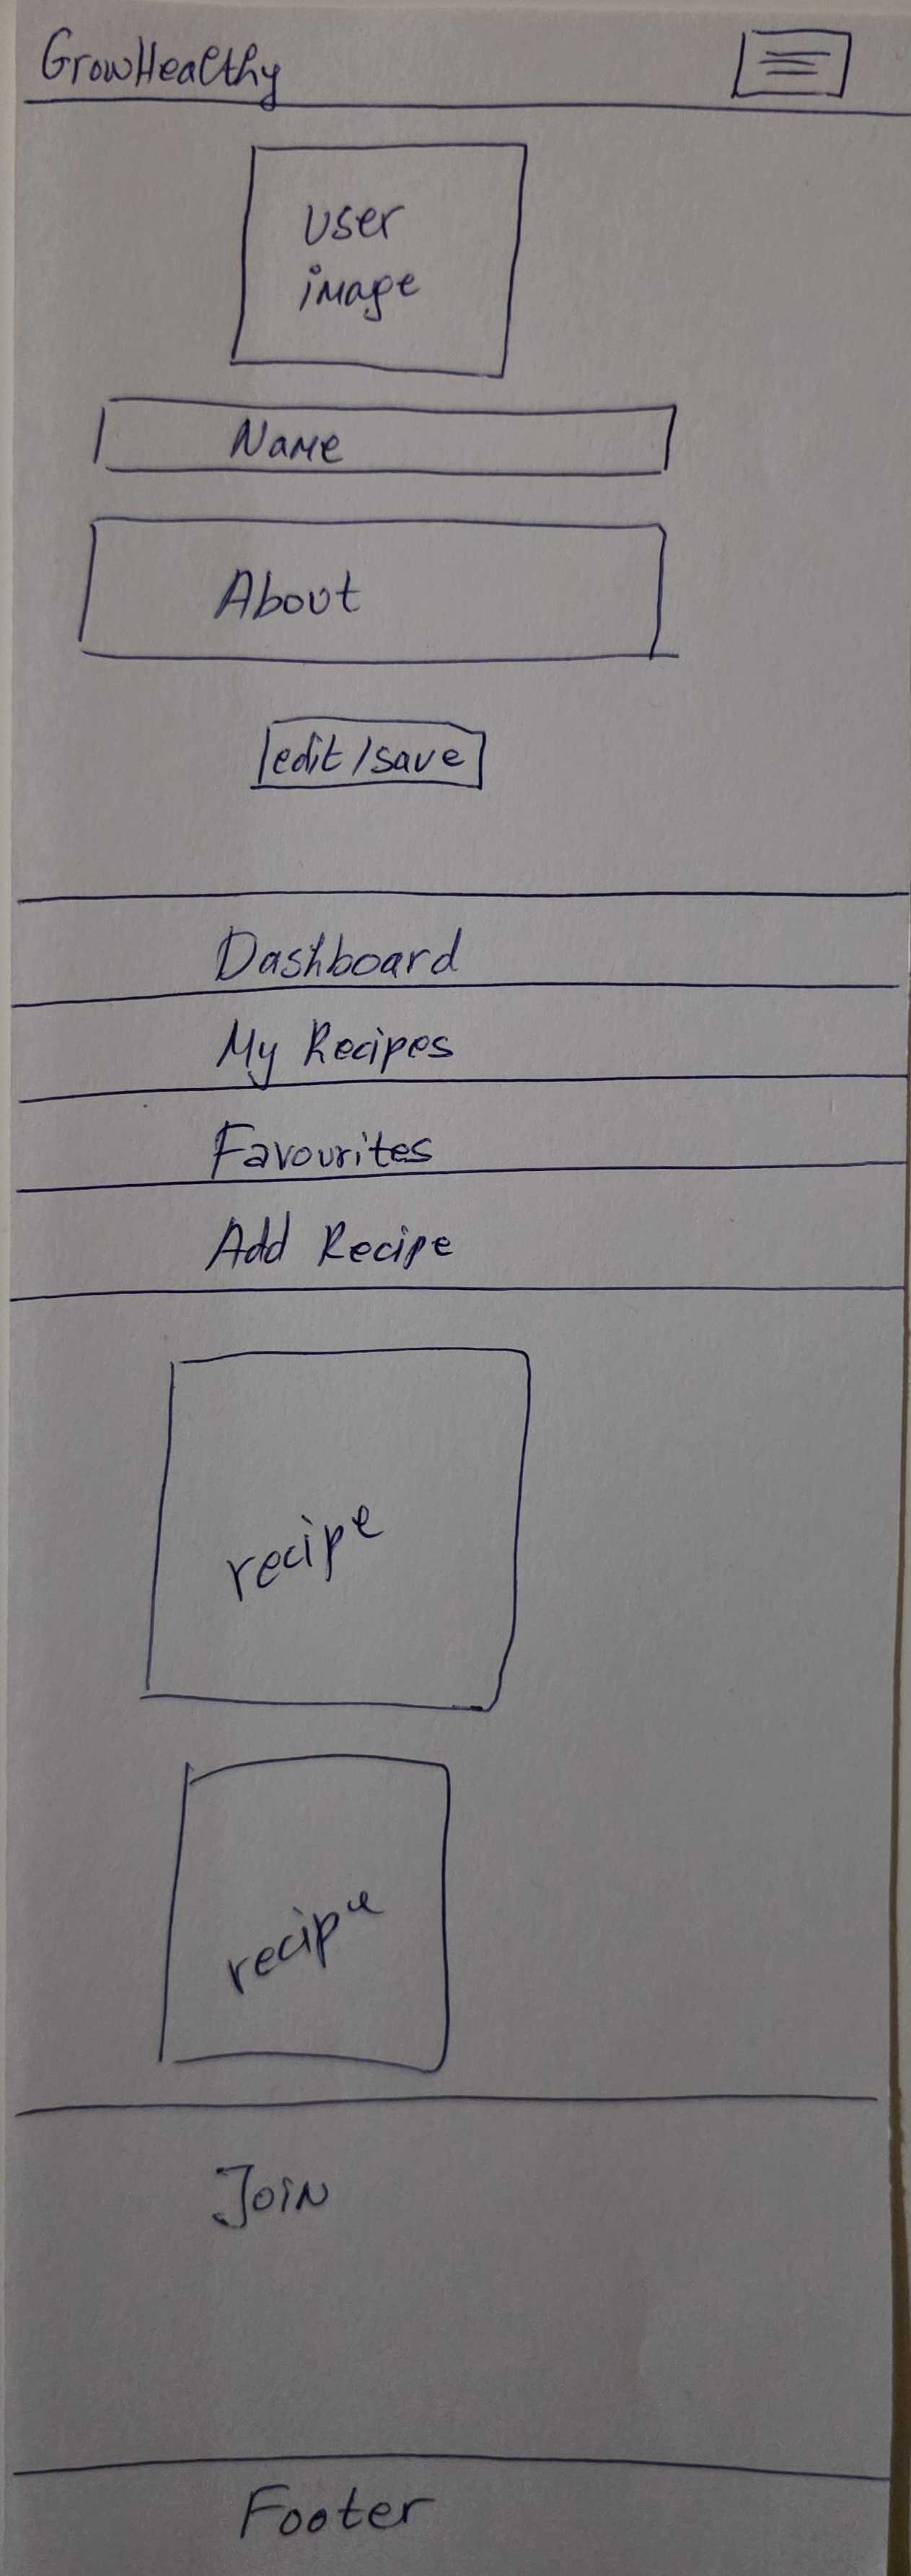 GrowHealthy
User
image
Name
About
edit/save
Dashboard
My Recipes
Favourites
Add Recipe
recipe
recipe
Join
Footer